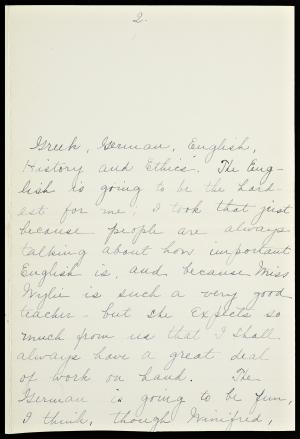 2.
Greek, German, English,
History and Ethics. The Eng-
lish is going to be the hard-
est for me, I took that just
because people are always
talking about how important
English is, and because Miss
Wylie is such a very good
teacher - but she expects so
much from us that I shall
always have a great deal
of work on hand. The
German is going to be fun,
I think, though Winifred,